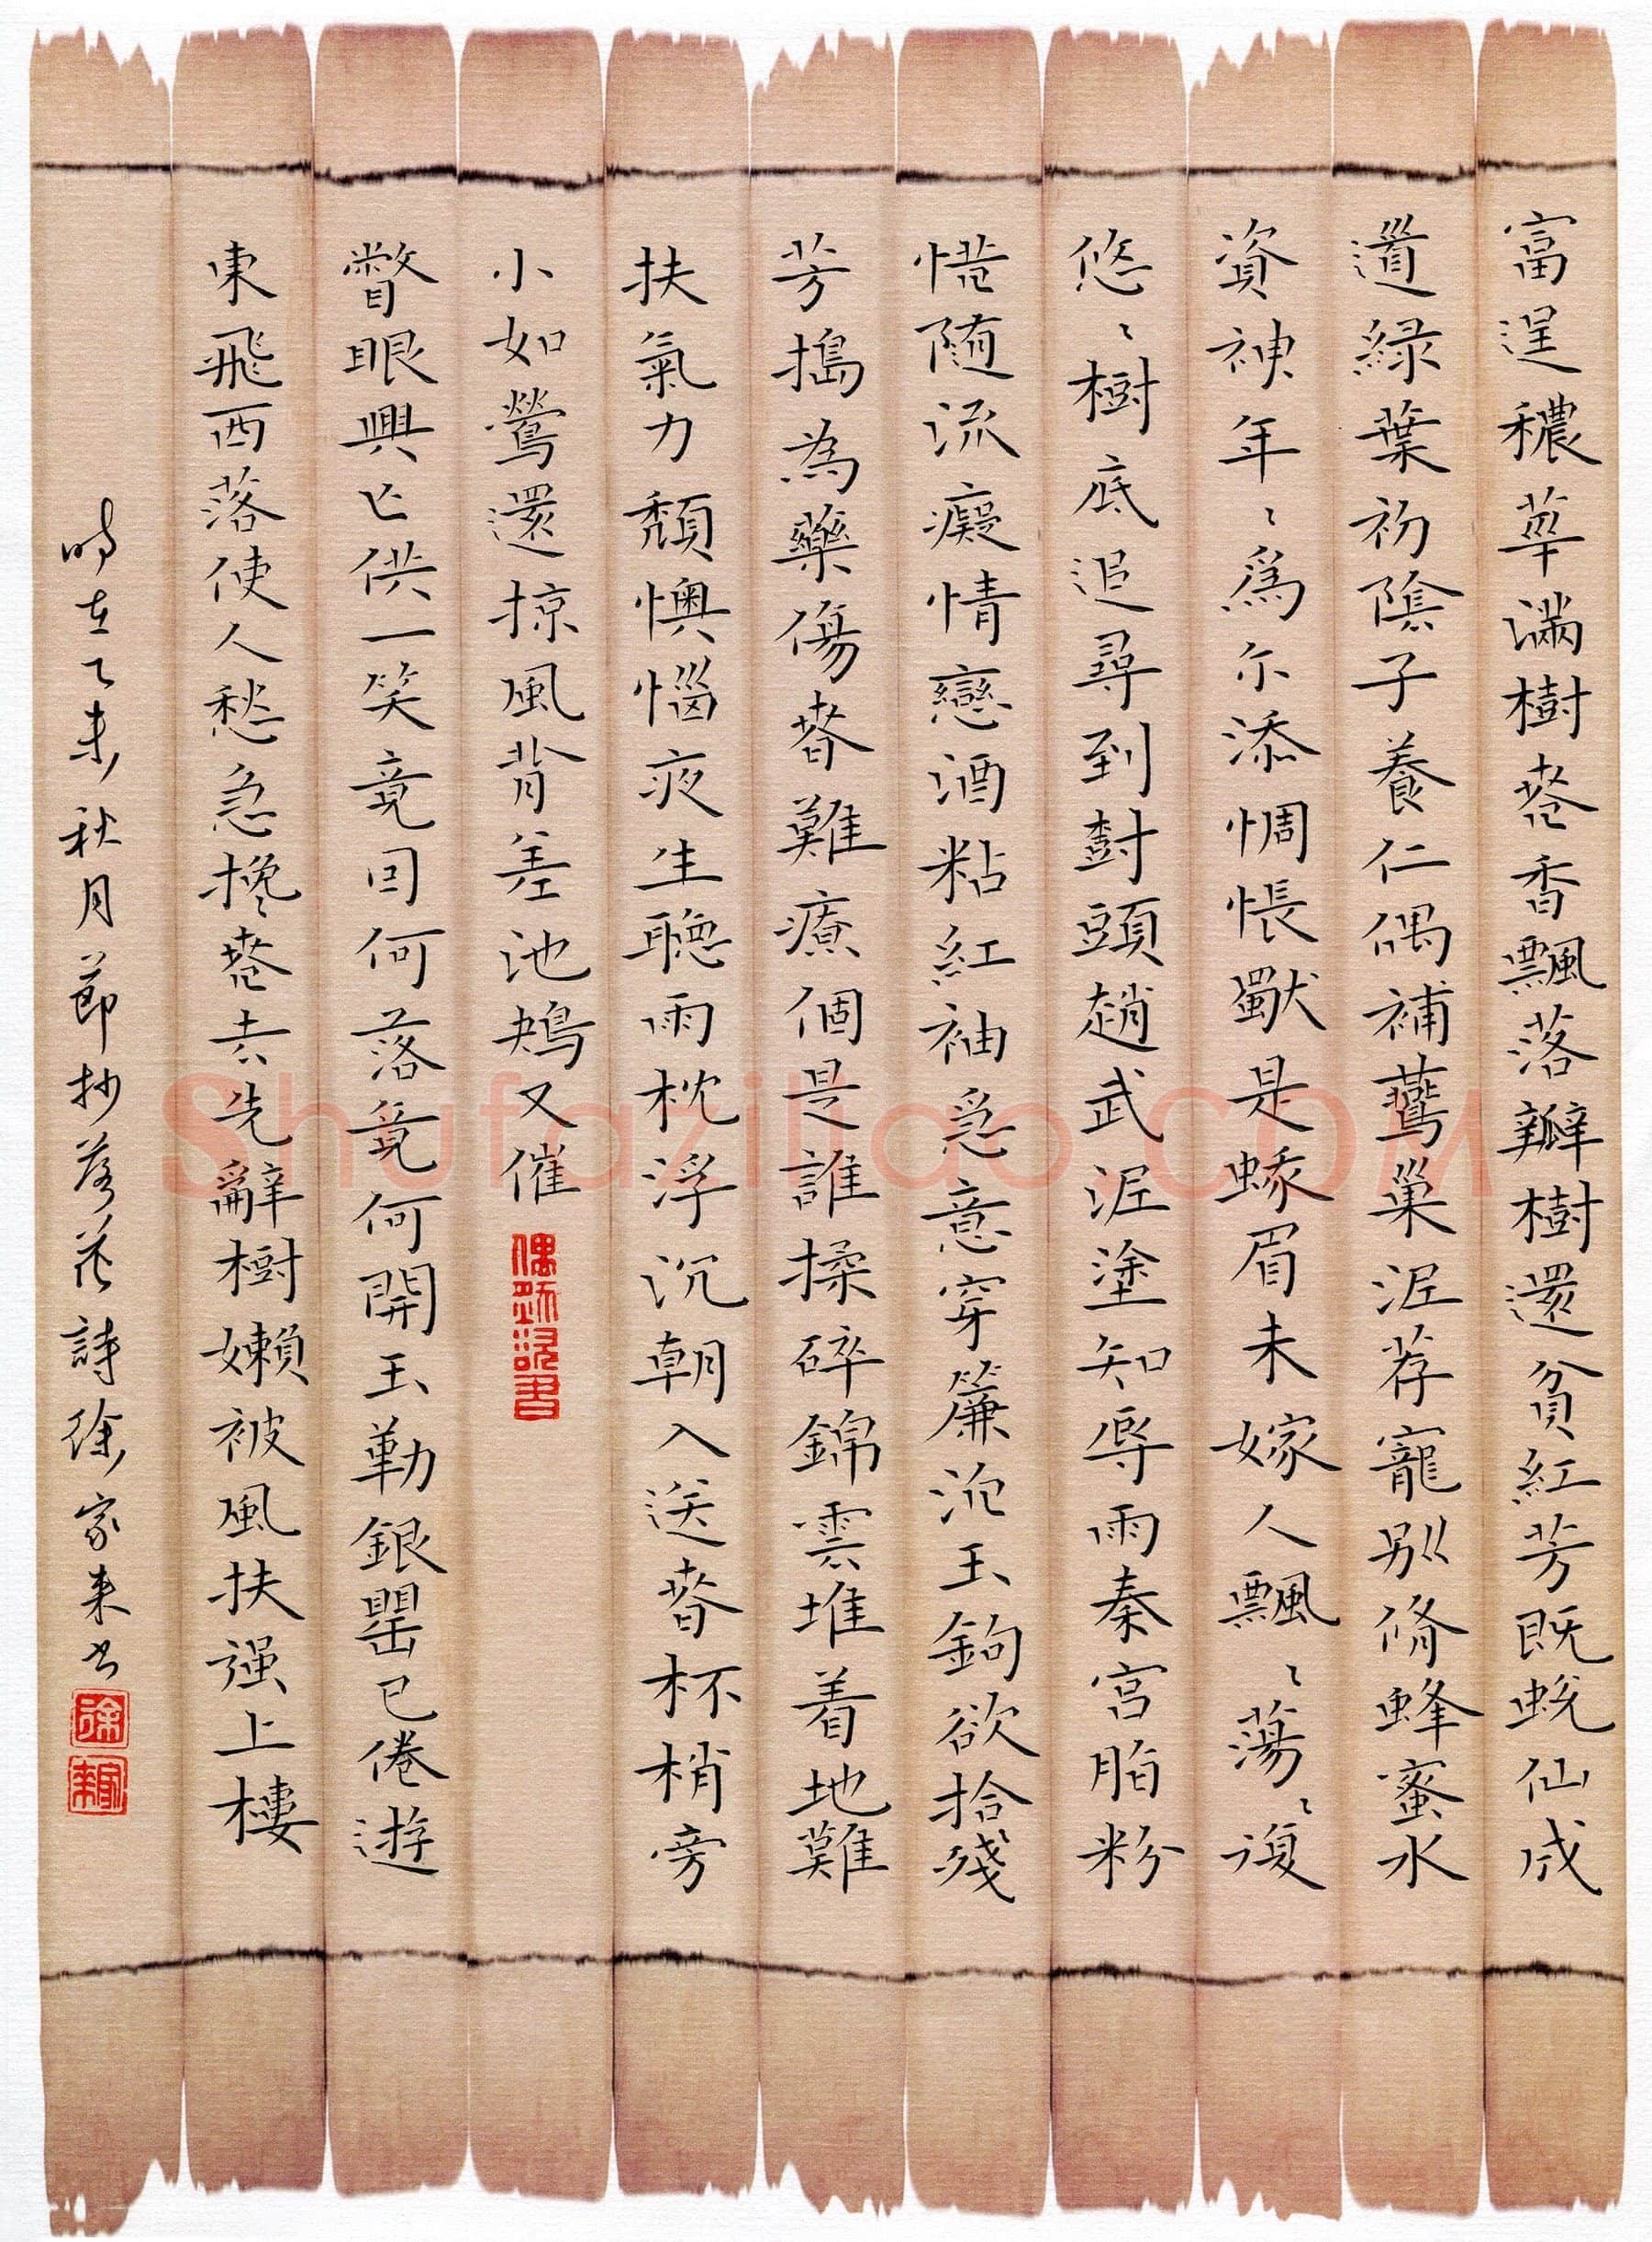 富逞穠華滿樹春香飄落瓣樹還貧紅芳既蛻仙成
道綠葉初陰子養仁偶補鶯巢泥荐寵別脩蜂蜜水
資神年〻為尔添惆悵獸是蛾眉未嫁人飄〻蕩〻復
悠〻樹底追尋到樹頭趙武泥塗知辱雨秦宮脂粉
惜随流癡情戀酒粘紅袖急意穿簾泥玉鉤欲拾殘
芳搗為藥傷春難療個是誰揉碎錦雲堆着地難
扶氣力頹懊惱夜生聽雨枕浮沉朝入送春杯梢旁
小如鶯還掠風背差池鴂又催
瞥眼興亡供一笑竟囙何落竟何開玉勒銀罌已倦遊
東飛西落使人愁急攙春去先辭樹嬾被風扶强上樓
時在乙未秋月節抄落花詩徐家來書
Shufaziliao.COM